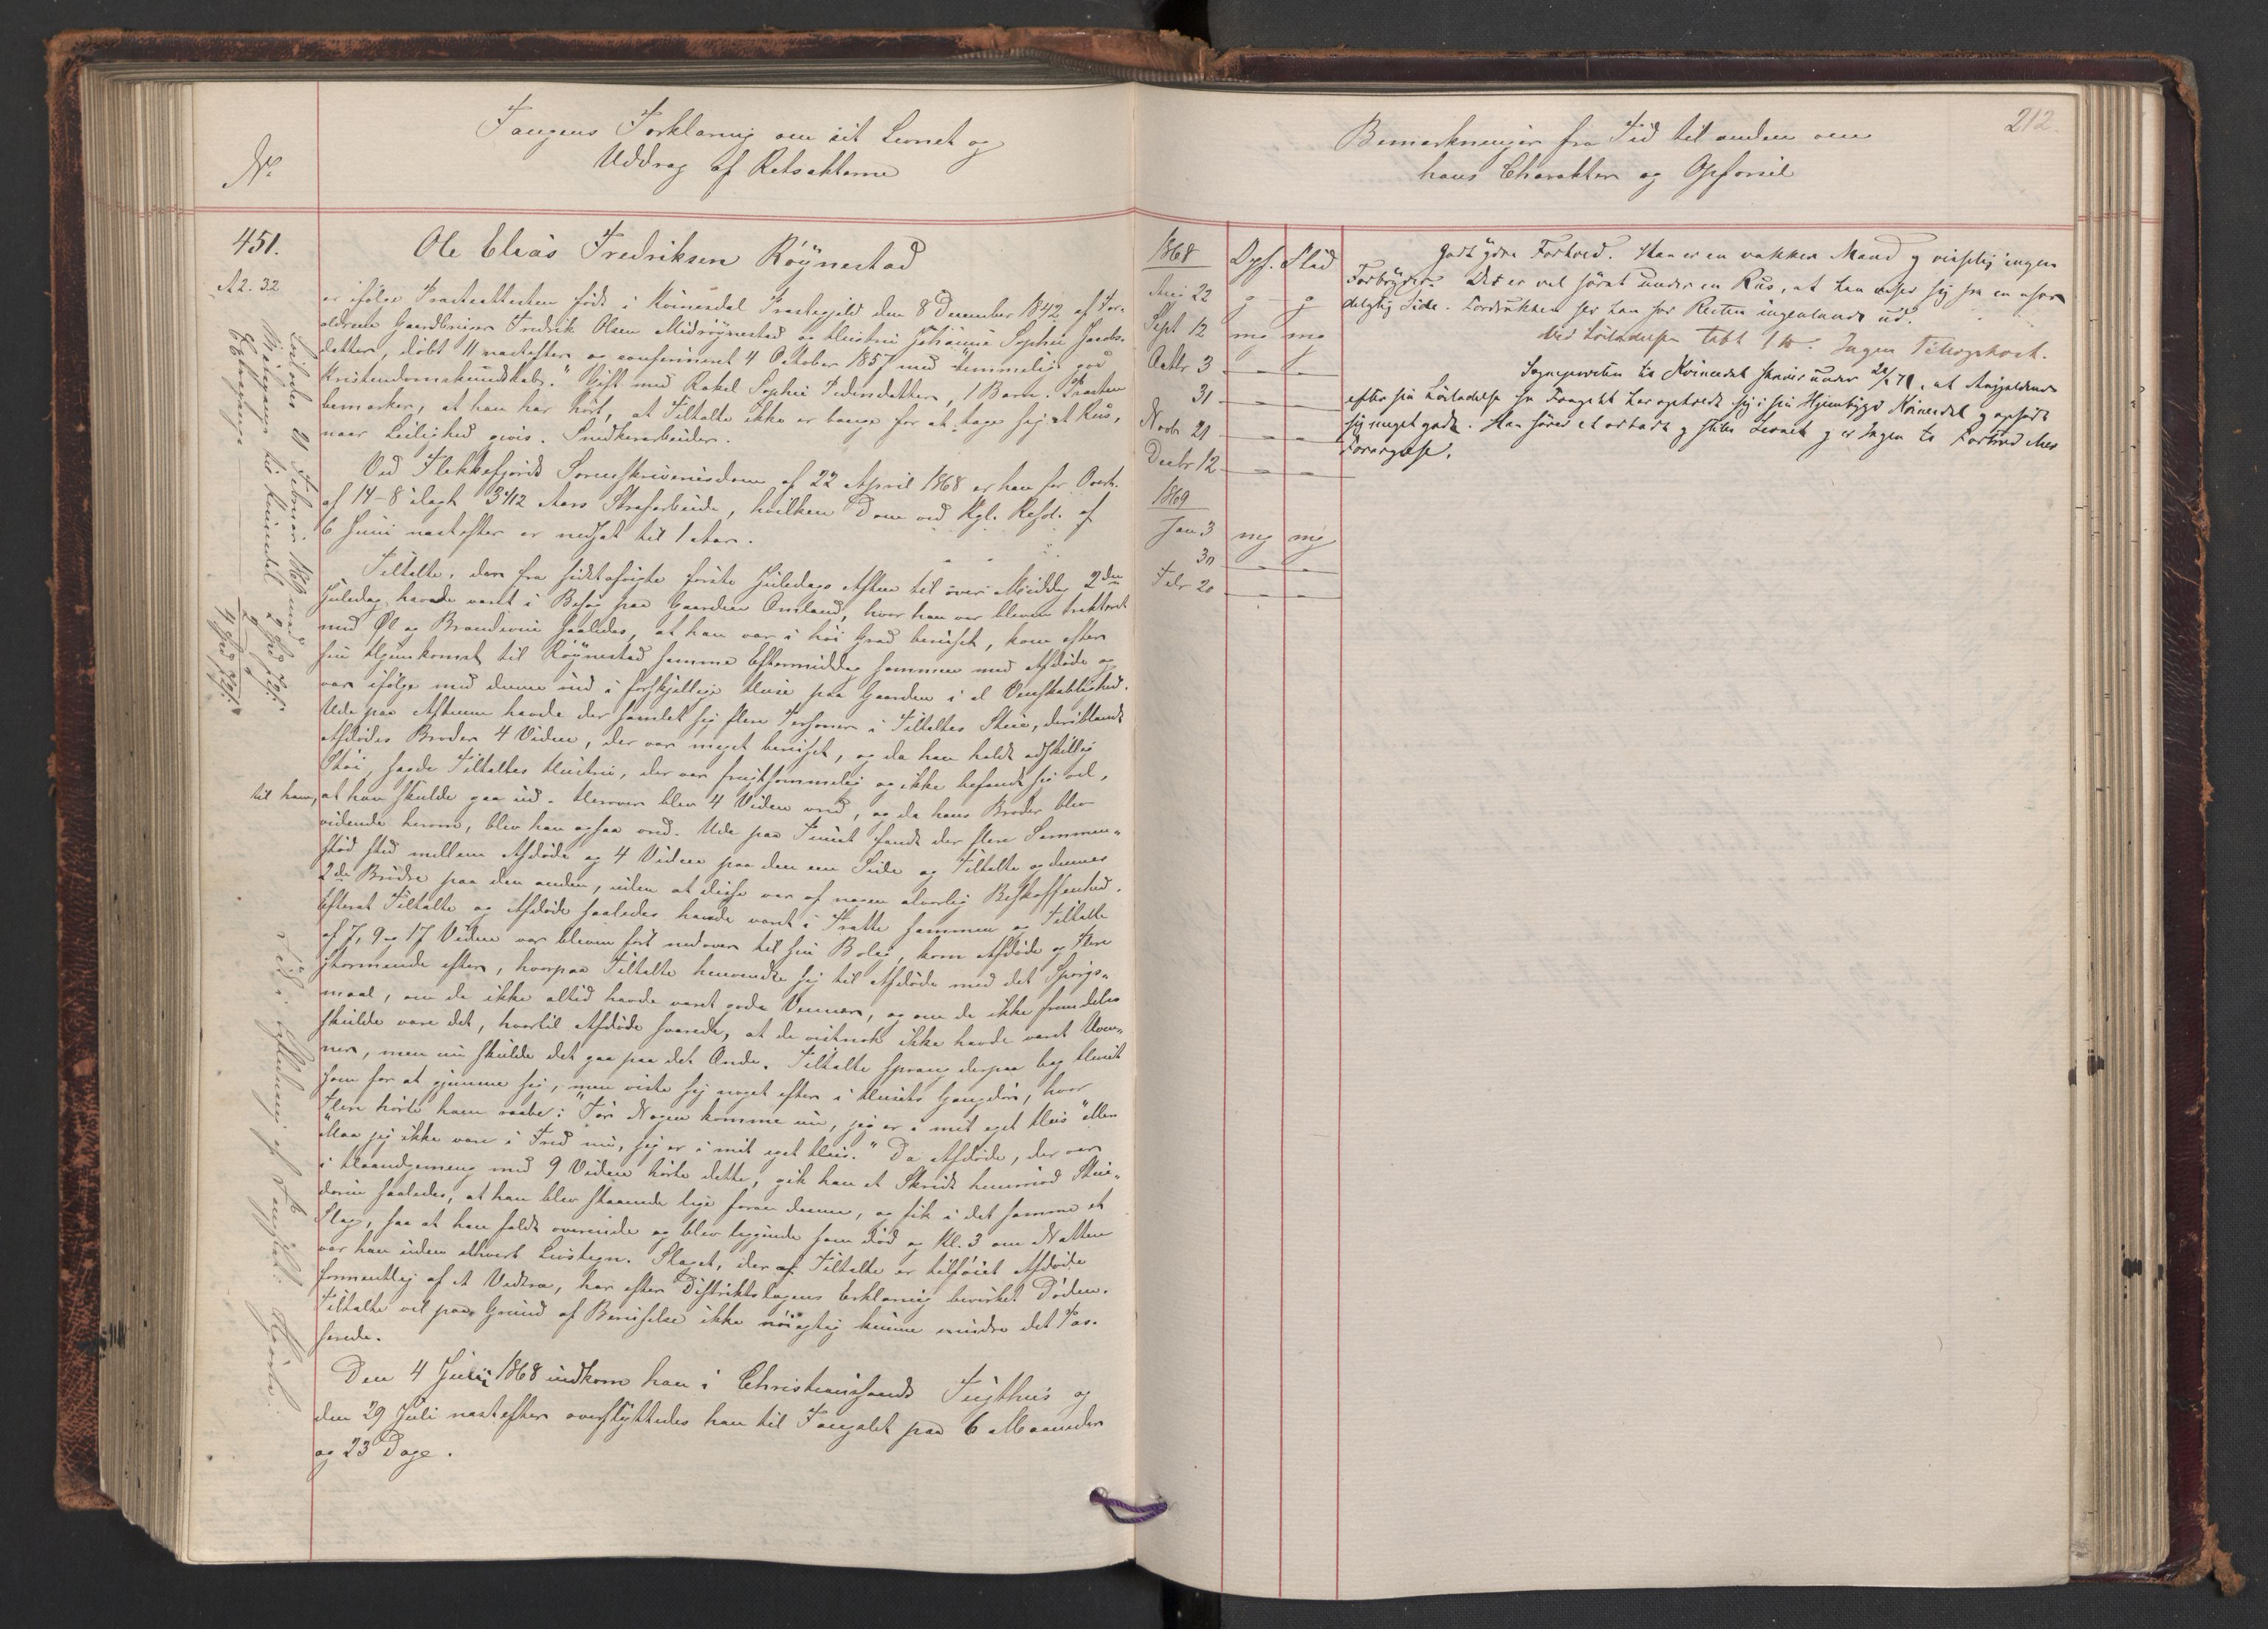 No
Fangens Forklaring om sit Levnet og
Uddrag af Retsakterne
451.
A2.32
Ole Elias Fredriksen Röÿnestad
er ifølge Præsteattesten født i Kvinesdal Præstegjeld den 8 December 1842 af For-
ældrene Gaardbruger Fredrik Olsen Midröÿnestad og Hustru Johanne Sophie Jacobs-
datter, döbt 11 næstefter og confirmeret 4 Oktober 1857 med "temmelig god
Kristendomskundskab." Gift med Rakel Sophie Pedersdatter, 1 Barn. Præsten
bemærker, at han har hört, at Tiltalte ikke er bange for at tage sig et Rus,
naar Leilighed givis. Snedkerarbeider.
Ved Flekkefjords Sorenskriverisdom af 22 April 1868 er han for Overtr.
af 14-8 ilagt 3 4/12 Aars Strafarbeide, hvilken Dom ved Kgl. Resol. af
6 Juni næstefter er nedsat til 1 Aar.
Tiltalte, der fra sidstafvigte förste Juledags Aften til over Middag 2den
Juledag havde været i Besög paa Gaarden Omland, hvor han var bleven trakteret
med Øl og Brændeviin saaledes, at han var i höi Grad beruset, kom efter
sin Hjemkomst til Röÿnestad samme Eftermiddag sammen med Afdöde og
var ifölge med denne ind i forskjellige Huse paa Gaarden i al Venskabelighed.
Ude paa Aftenen havde der samlet sig flere Personer i Tiltaltes Stue, deriblandt
Afdödes Broder 4 Vidne, der var meget beruset, og da han holdt adskillig
Stöi, sagde Tiltaltes Hustru, der var frugtsommelig og ikke befandt sig vel,
til ham, at han skulde gaa ud. Herover blev 4 Vidne vred, og da hans Broder blev
vidende herom, blev han ogsaa vred. Ude paa Tunet fandt der flere Sammen-
stöd sted mellem Afdöde og 4 Vidne paa den ene Side og Tiltalte og dennes
2de Brödre paa den anden, uden at disse var af nogen alvorlig Beskaffenhed.
Efterat Tiltalte og Afdöde saaledes havde været i Trætte sammen og Tiltalte
af 7, 9 og 17 Vidne var bleven fört nedover til sin Bolig, kom Afdöde og Flere
stormende efter, hvorpaa Tiltalte henvendte sig til Afdöde med det Spörgs-
maal, om de ikke altid havde været gode Venner, og om de ikke fremdeles
skulde være det, hvortil Afdöde svarede, at de vistnok ikke havde været Uven-
ner, men nu skulde det gaa paa det Onde. Tiltalte sprang derpaa bag Huset
som for at gjemme sig, men viste sig noget efter i Husets Gangdör, hvor
Flere hörte ham raabe: "Tör Nogen komme nu, jeg er i mit eget Hus" eller
"Maa jeg ikke være i Fred nu, jeg er i mit eget Hus." Da Afdöde, der var
i Haandgemeng med 9 Vidne hörte dette, gik han et Skridt henimod Stue-
dören saaledes, at han blev staaende lige foran denne, og fik i det samme et
Slag, saa at han faldt overende og blev liggende som död og Kl. 3 om Natten
var han uden ethvert Livstegn. Slaget, der af Tiltalte er tilföiet Afdöde
formentlig af et Vedtræ, har efter Distriktslægens Erklæring bevirket Döden.
Tiltalte vil paa Grund af Beruselse ikke nöiagtig kunne erindre det Pas-
serede.
Den 4 Juli 1868 indkom han i Christianssands Tugthus og
den 29 Juli næstefter overflyttedes han til Fangslet paa 6 Maaneder
og 23 Dage.
Löslades 21 Februar 1869 med
til Kvinesdal 2 Spd
4 Spd
212.
Bemærkninger fra Tid til anden om
hans Charakter og Opförsel
1868 Opf. Flid
Aug 22 g g
Sept 12 mg mg
Octbr 3 - -
31 - -
Novb 21 - -
Decbr 12 - -
1869
Jan 3 mg mg
30 - -
Febr 20 - -
Godt ydre Forhold. Han er en vakker Mand og virkelig ingen
Forbryder. Det er vel først under en Rus, at han viser sig fra en ufor-
delagtig Side. Fordrukken ser han for Resten ingenlunde ud.
Ved Lösladelsen tabt 1 ℔. Ingen
Sognepresten til Kvinesdal skriver under 20/2 71, at Angjeldende
efter sin Lösladelse fra Fangslet har opholdt sig i sin Hjembygd Kvinesdal og opfört
sig meget godt. Han förer et ædru og stille Levnet og er Ingen til Fortræd eller
Forargelse.